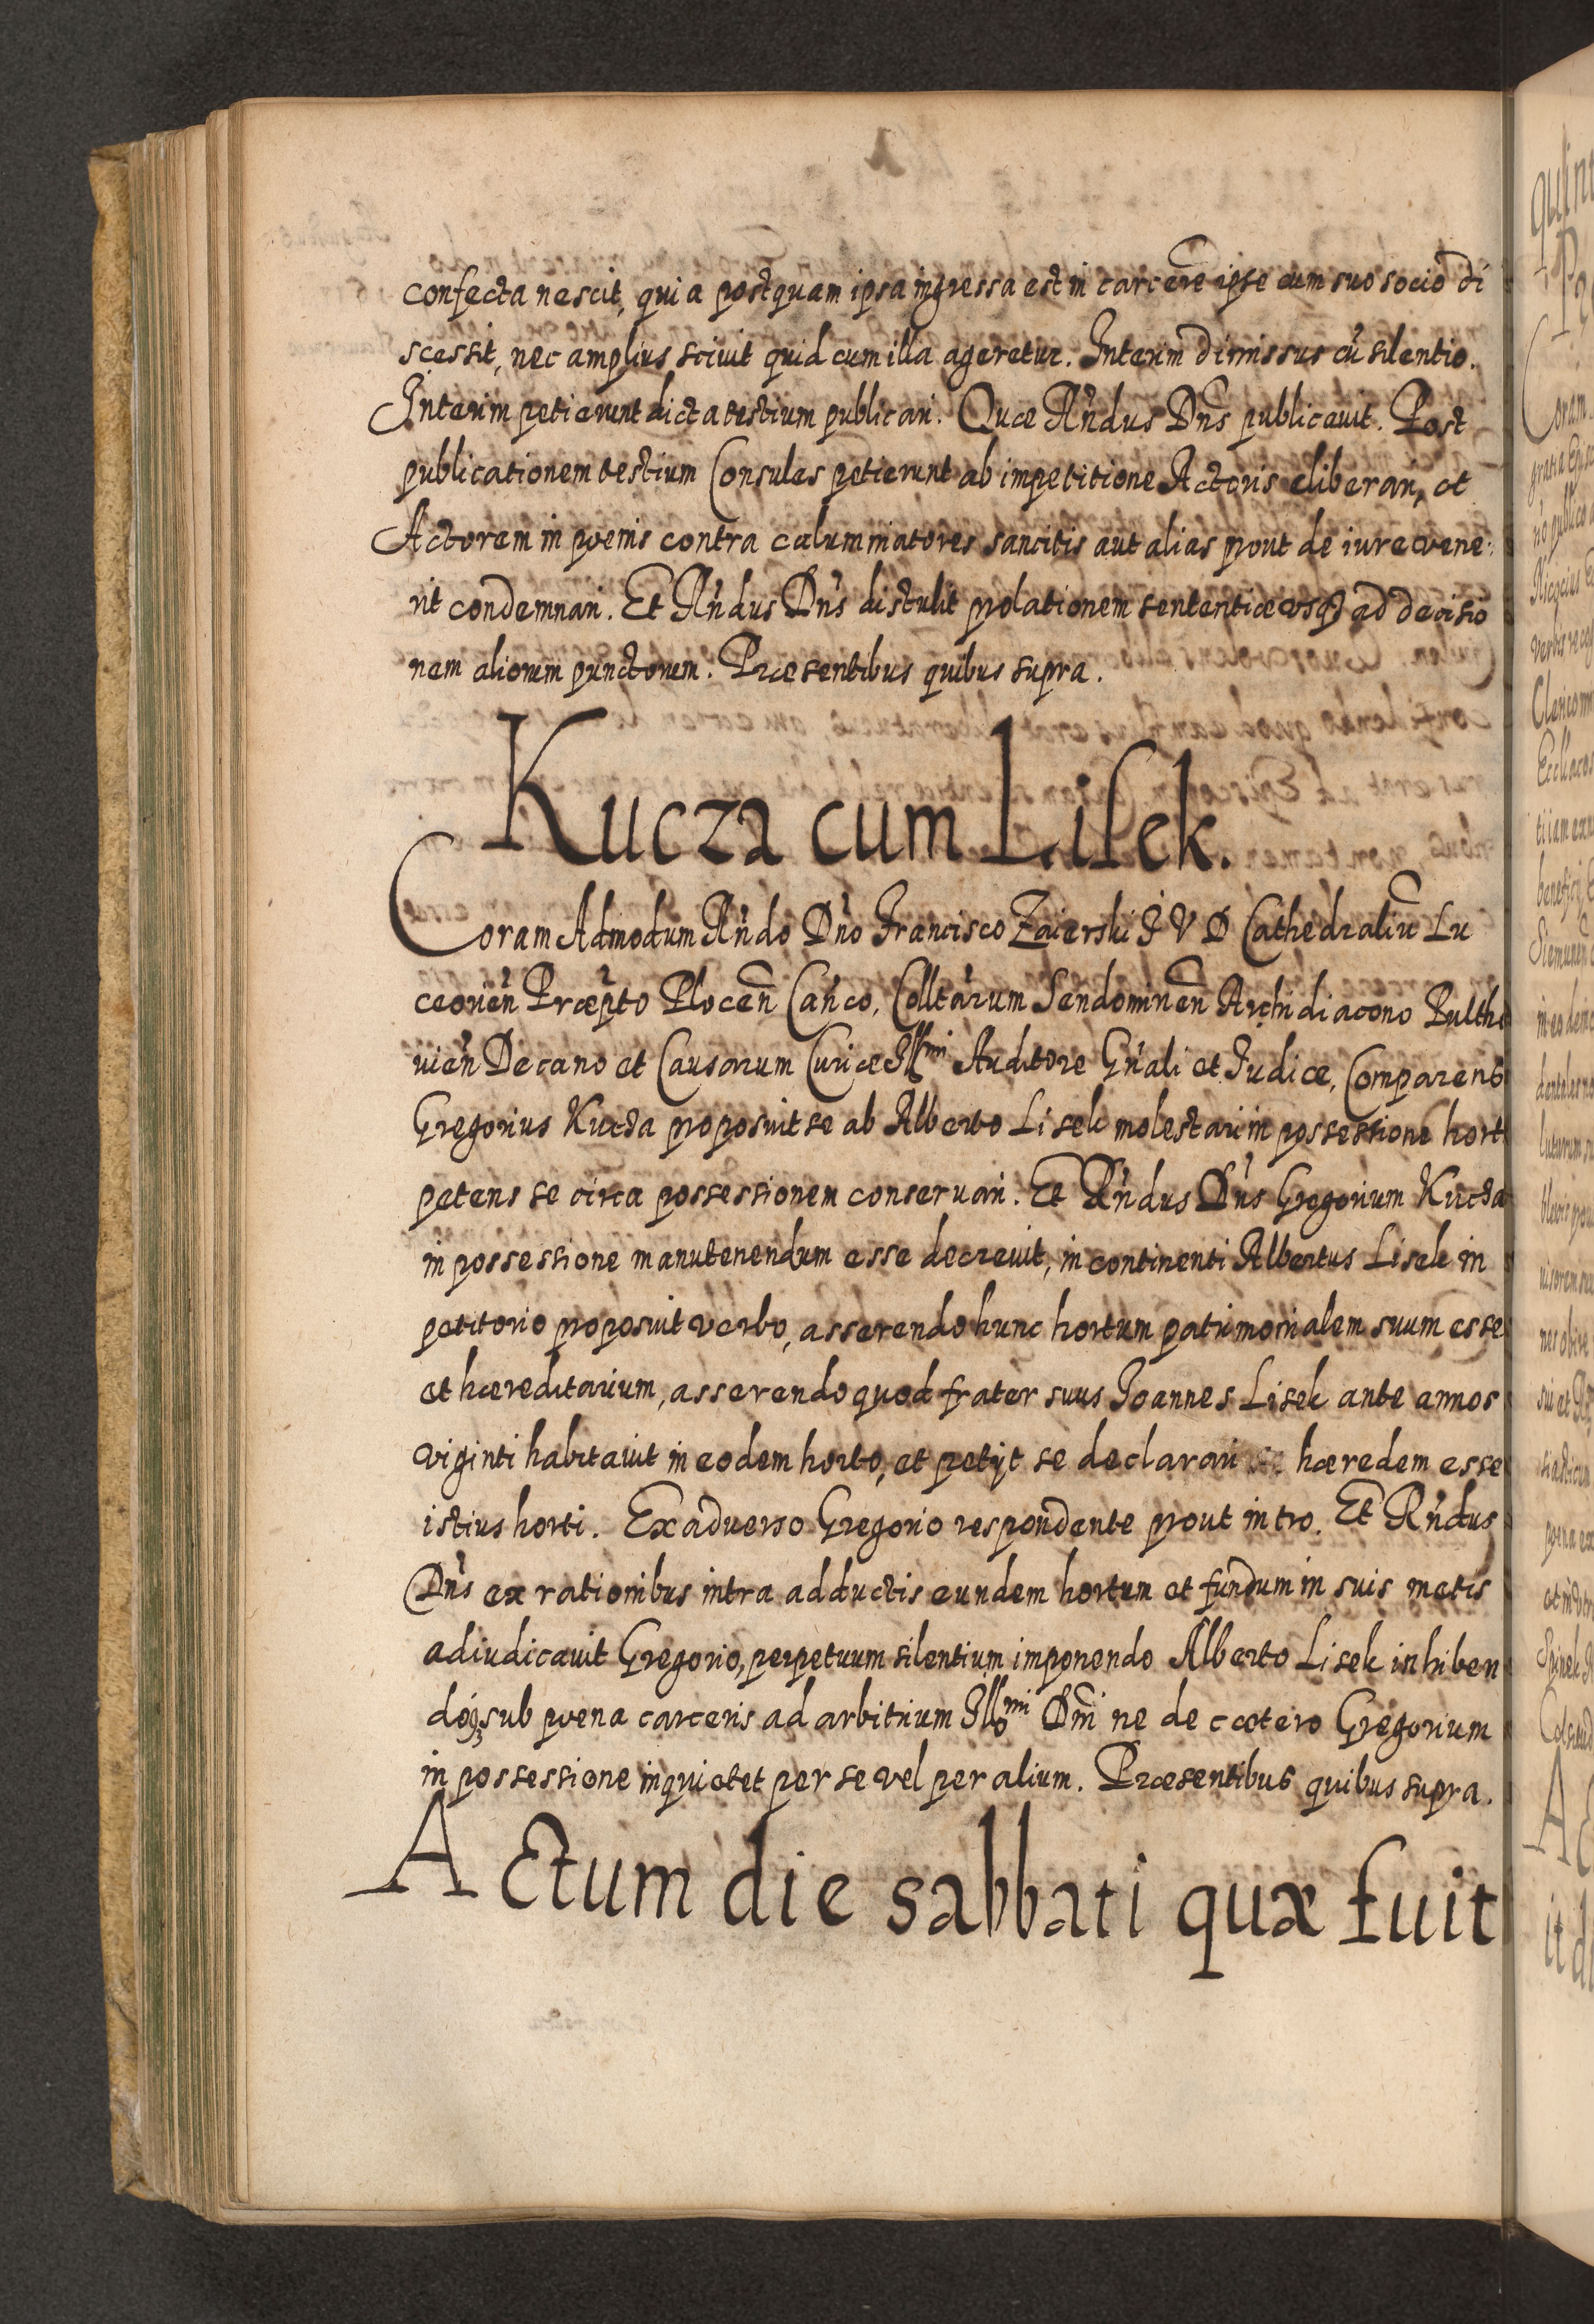 confecta nescit, quia postquam ipsa ingressa est in carcere ipse cum suo socio di
scessit, nec amplius scivit quid cum illa ageretur. Interim dimissus cū silentio.
Interim petierunt dicta testium publicari. Quæ Rn̄dus Dn̄s publicavit. Post
publicationem testium Consules petierunt ab impetitione Actoris eliberari, et
Actorem in pœnis contra calumniatores sancitis aut alias prout de iure vene:
rit condemnari. Et Rn̄dus Dn̄s distulit prolationem sententiæ vsq₃ ad decisio
nem aliorum punctorum. Præsentibus quibus supra.
Kucza cum Lisek.
Coram Admodum Rn̄do Dn̄o Francisco Zaierski I V D Cathedraliū Lu
ceorien̄ Præp̄to Plocen̄ Can̄co, Colltārum Sendomirien̄ Archidiacono Pulthe
uien̄ Decano et Causarum Curiæ Illmi Auditore Gn̄ali et Iudice, Comparens
Gregorius Kucza proposuit se ab Alberto Lisek molestari in possessione horti
petens se circa possessionem conseruari. Et Rn̄dus Dn̄s Gregorium Kucza
in possessione manutenendum esse decrevit, in continenti Albertus Lisek in
petitorio proposuit verbo, asserendo hunc hortum patrimonialem suum esse
et hæreditarium, asserendo quod frater suus Ioannes Lisek ante annos
viginti habitavit in eodem horto, et petijt se declarari hæredem esse
istius horti. Ex adverso Gregorio respondente prout intro. Et Rn̄dus
Dn̄s ex rationibus intra adductis eundem hortum et fundum in suis metis
adiudicavit Gregorio, perpetuum silentium imponendo Alberto Lisek inhiben
doq₃ sub pœna carceris ad arbitrium Illmi Dn̄i ne de cætero Gregorium
in possessione inquietet per se vel per alium. Præsentibus quibus supra.
Actum die sabbati quæ fuit